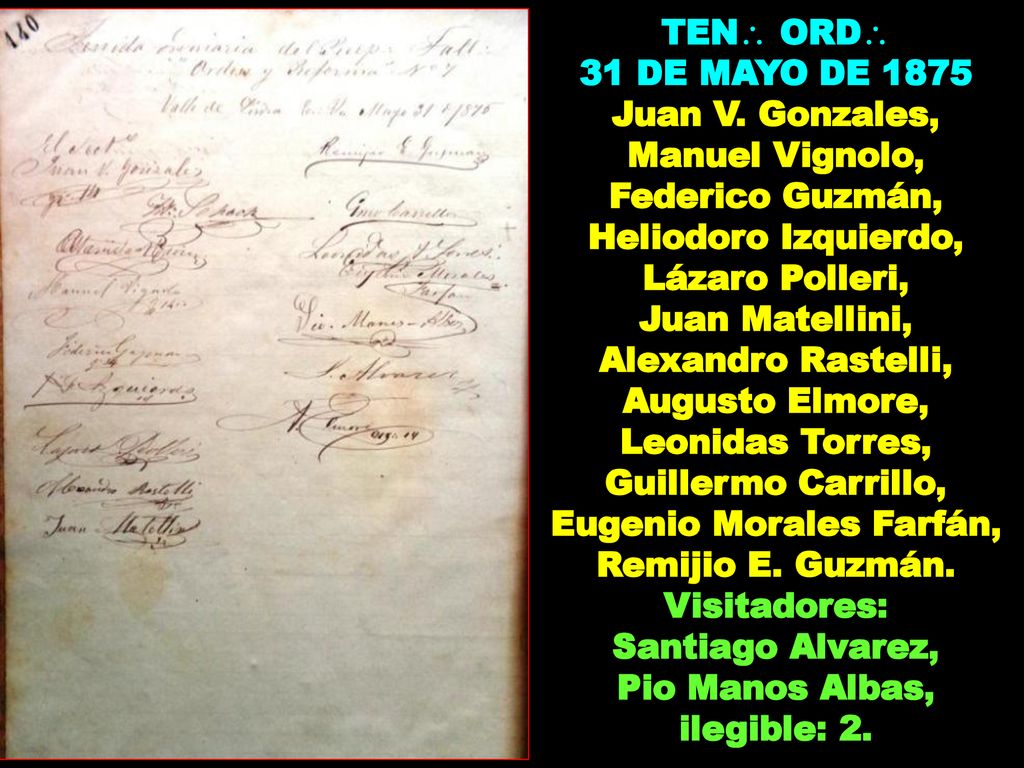 140
Tenida Ordinaria del Resp∴ Tall∴
"Orden y Reforma" Nº 7
Valle de Piura Mayo 31 1875
El Sect
Juan V. Gonzales
gr 14
Schack
Manuel Vignolo
Federico Guzman
Izquierdo
Lazaro Polleri
Alexandro Rastelli
Juan Matellini
Remijio E. Guzman
Gmo Carrillo
Leonidas Torres
Eugenio Morales
Farfan
Pio. Manos-Albas
S. Alvarez
TEN∴ ORD∴
31 DE MAYO DE 1875
Juan V. Gonzales,
Manuel Vignolo,
Federico Guzmán,
Heliodoro Izquierdo,
Lázaro Polleri,
Juan Matellini,
Alexandro Rastelli,
Augusto Elmore,
Leonidas Torres,
Guillermo Carrillo,
Eugenio Morales Farfán,
Remijio E. Guzmán.
Visitadores:
Santiago Alvarez,
Pio Manos Albas,
ilegible: 2.